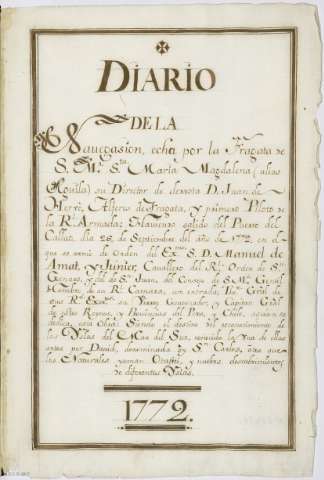 DIARIO
DE LA
Navegasion, echa por la Fragata de
S. M. Sta Maria Magdalena (alias
Aguila) su Director de derrota D. Juan de
Herve, Alferes de Fragata, y primero Piloto de
la Rl. Armada: Haviendo salido del Puerto del
Callao, dia 26, de Septiembre del año de 1772, en el
que se de Orden del Exo. S. D. Manuel de
Amat, y Junient, Cavallero del Rl. Orden de Sn.
Genaro, y del de Sn. Juan, del Consejo de S. M. Gentil
Hombre de su Rl. Camara, con entrada, Tente. Gral. de
sus Rs. Exertos. su Virrey Governador, y Capitan Gral.
de estos Reynos, y Provincias del Peru, y Chile, a quien se
dedica esta Obra: Siendo el destino del reconocimiento de
las Yslas del Mar del Sur, venido la Yua de ellas
por David, denominada de Sn. Carlos, otra que
los Naturales llaman Otaheti, y nuebos descubrimientos
de diferentes Yslas.
1772.